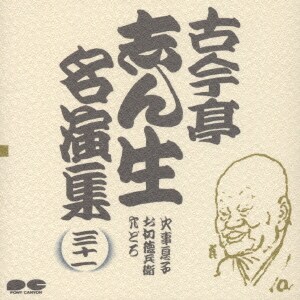 古今亭
志ん生
名演集
三十一
火事息子
お切徳兵衛
穴どろ
PONY CANYON